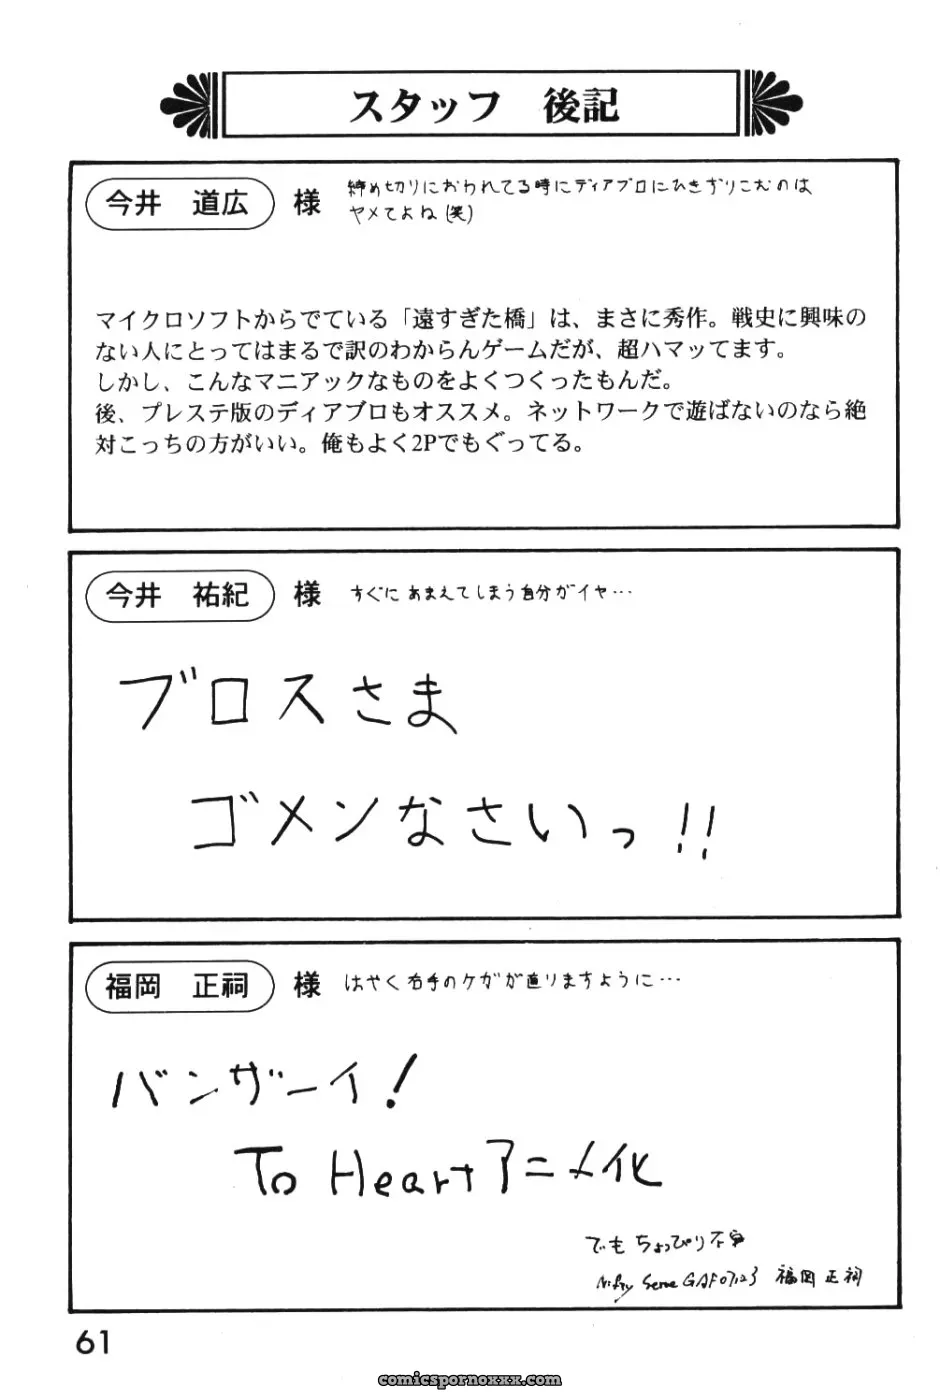 スタッフ 後記
今井 道広 様
締め切りにおわれてる時にディアブロにひきずりこむのは
ヤメてよね(笑)
マイクロソフトからでている「遠すぎた橋」は、まさに秀作。戦史に興味の
ない人にとってはまるで訳のわからんゲームだが、超ハマッてます。
しかし、こんなマニアックなものをよくつくったもんだ。
後、プレステ版のディアブロもオススメ。ネットワークで遊ばないのなら絶
対こっちの方がいい。俺もよく2Pでもぐってる。
今井 祐紀 様 すぐにあまえてしまう自分がイヤ…
ブロスさま
ゴメンなさいっ!!
福岡 正祠 様 はやく右手のケガが直りますように…
バンザーイ!
To Heartアニメ化
でもちょっぴり不安
Nifty Serve GAF07123 福岡 正祠
61
comicspornoxxx.com